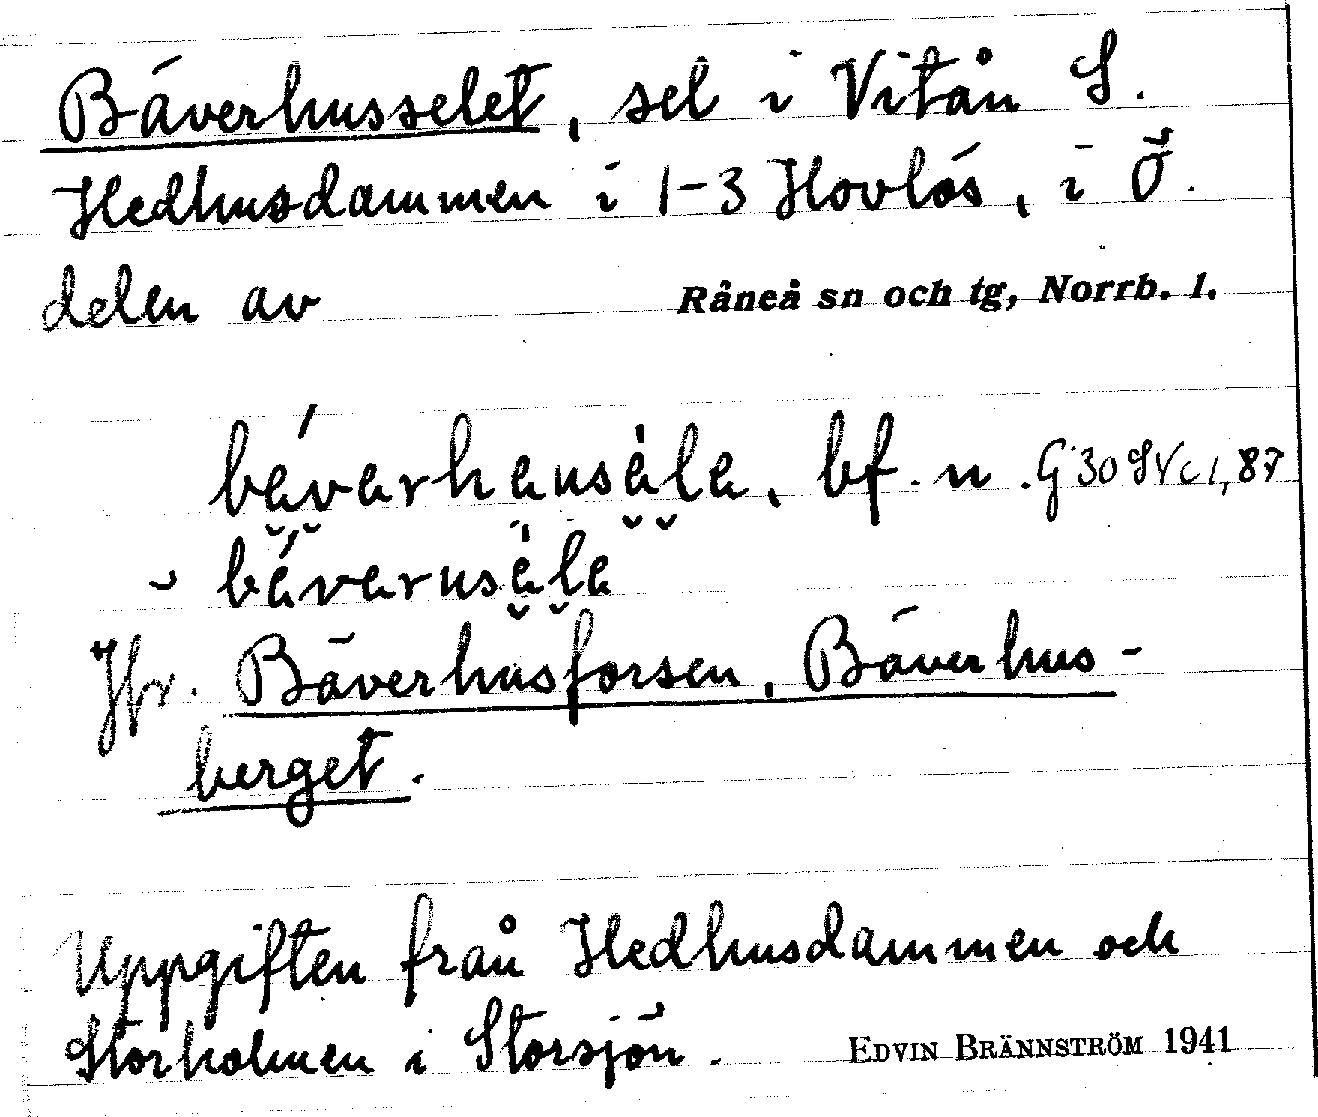 Bäverhusselet, sel i Vitån S.
Hedhusdammen i 1-3 Hovlös, i Ö.
delen av Råneå sn och tg, Norrb. l.
bf. n.
Jfr. Bäverhusforsen, Bäverhus-
berget.
Uppgiften från Hedhusdammen och
Storholmen i Storsjön. EDVIN BRÄNNSTRÖM 1941